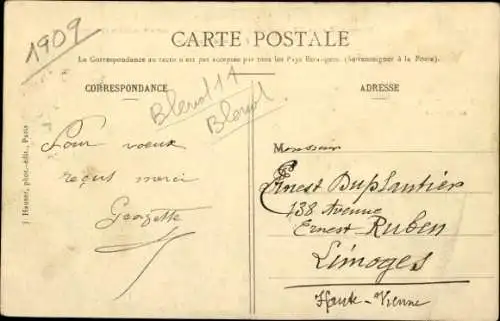 1909
CARTE POSTALE
La Correspondance au recto n'est pas acceptée par tous les Pays Etrangers. (Se renseigner à la Poste).
CORRESPONDANCE
ADRESSE
Bleriot 11
Bleriot
J. Hauser, phot.-édit., Paris
Pour voeux
reçus merci
Georgette
Monsieur
Ernest Duplantier
138 Avenue
Ernest Ruben
Limoges
Haute-Vienne